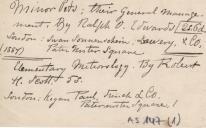 Minor Pets: their General Manage-
ment. By Ralph O. Edwards
London: Swan Sonnenschein, Lowrey, & Co.
(1887) Paternoster Square
Elementary Meteorology. By Robert
H. Scott
London: Kegan Paul, Trench & Co.
Paternoster Square.
AS 147 (1)